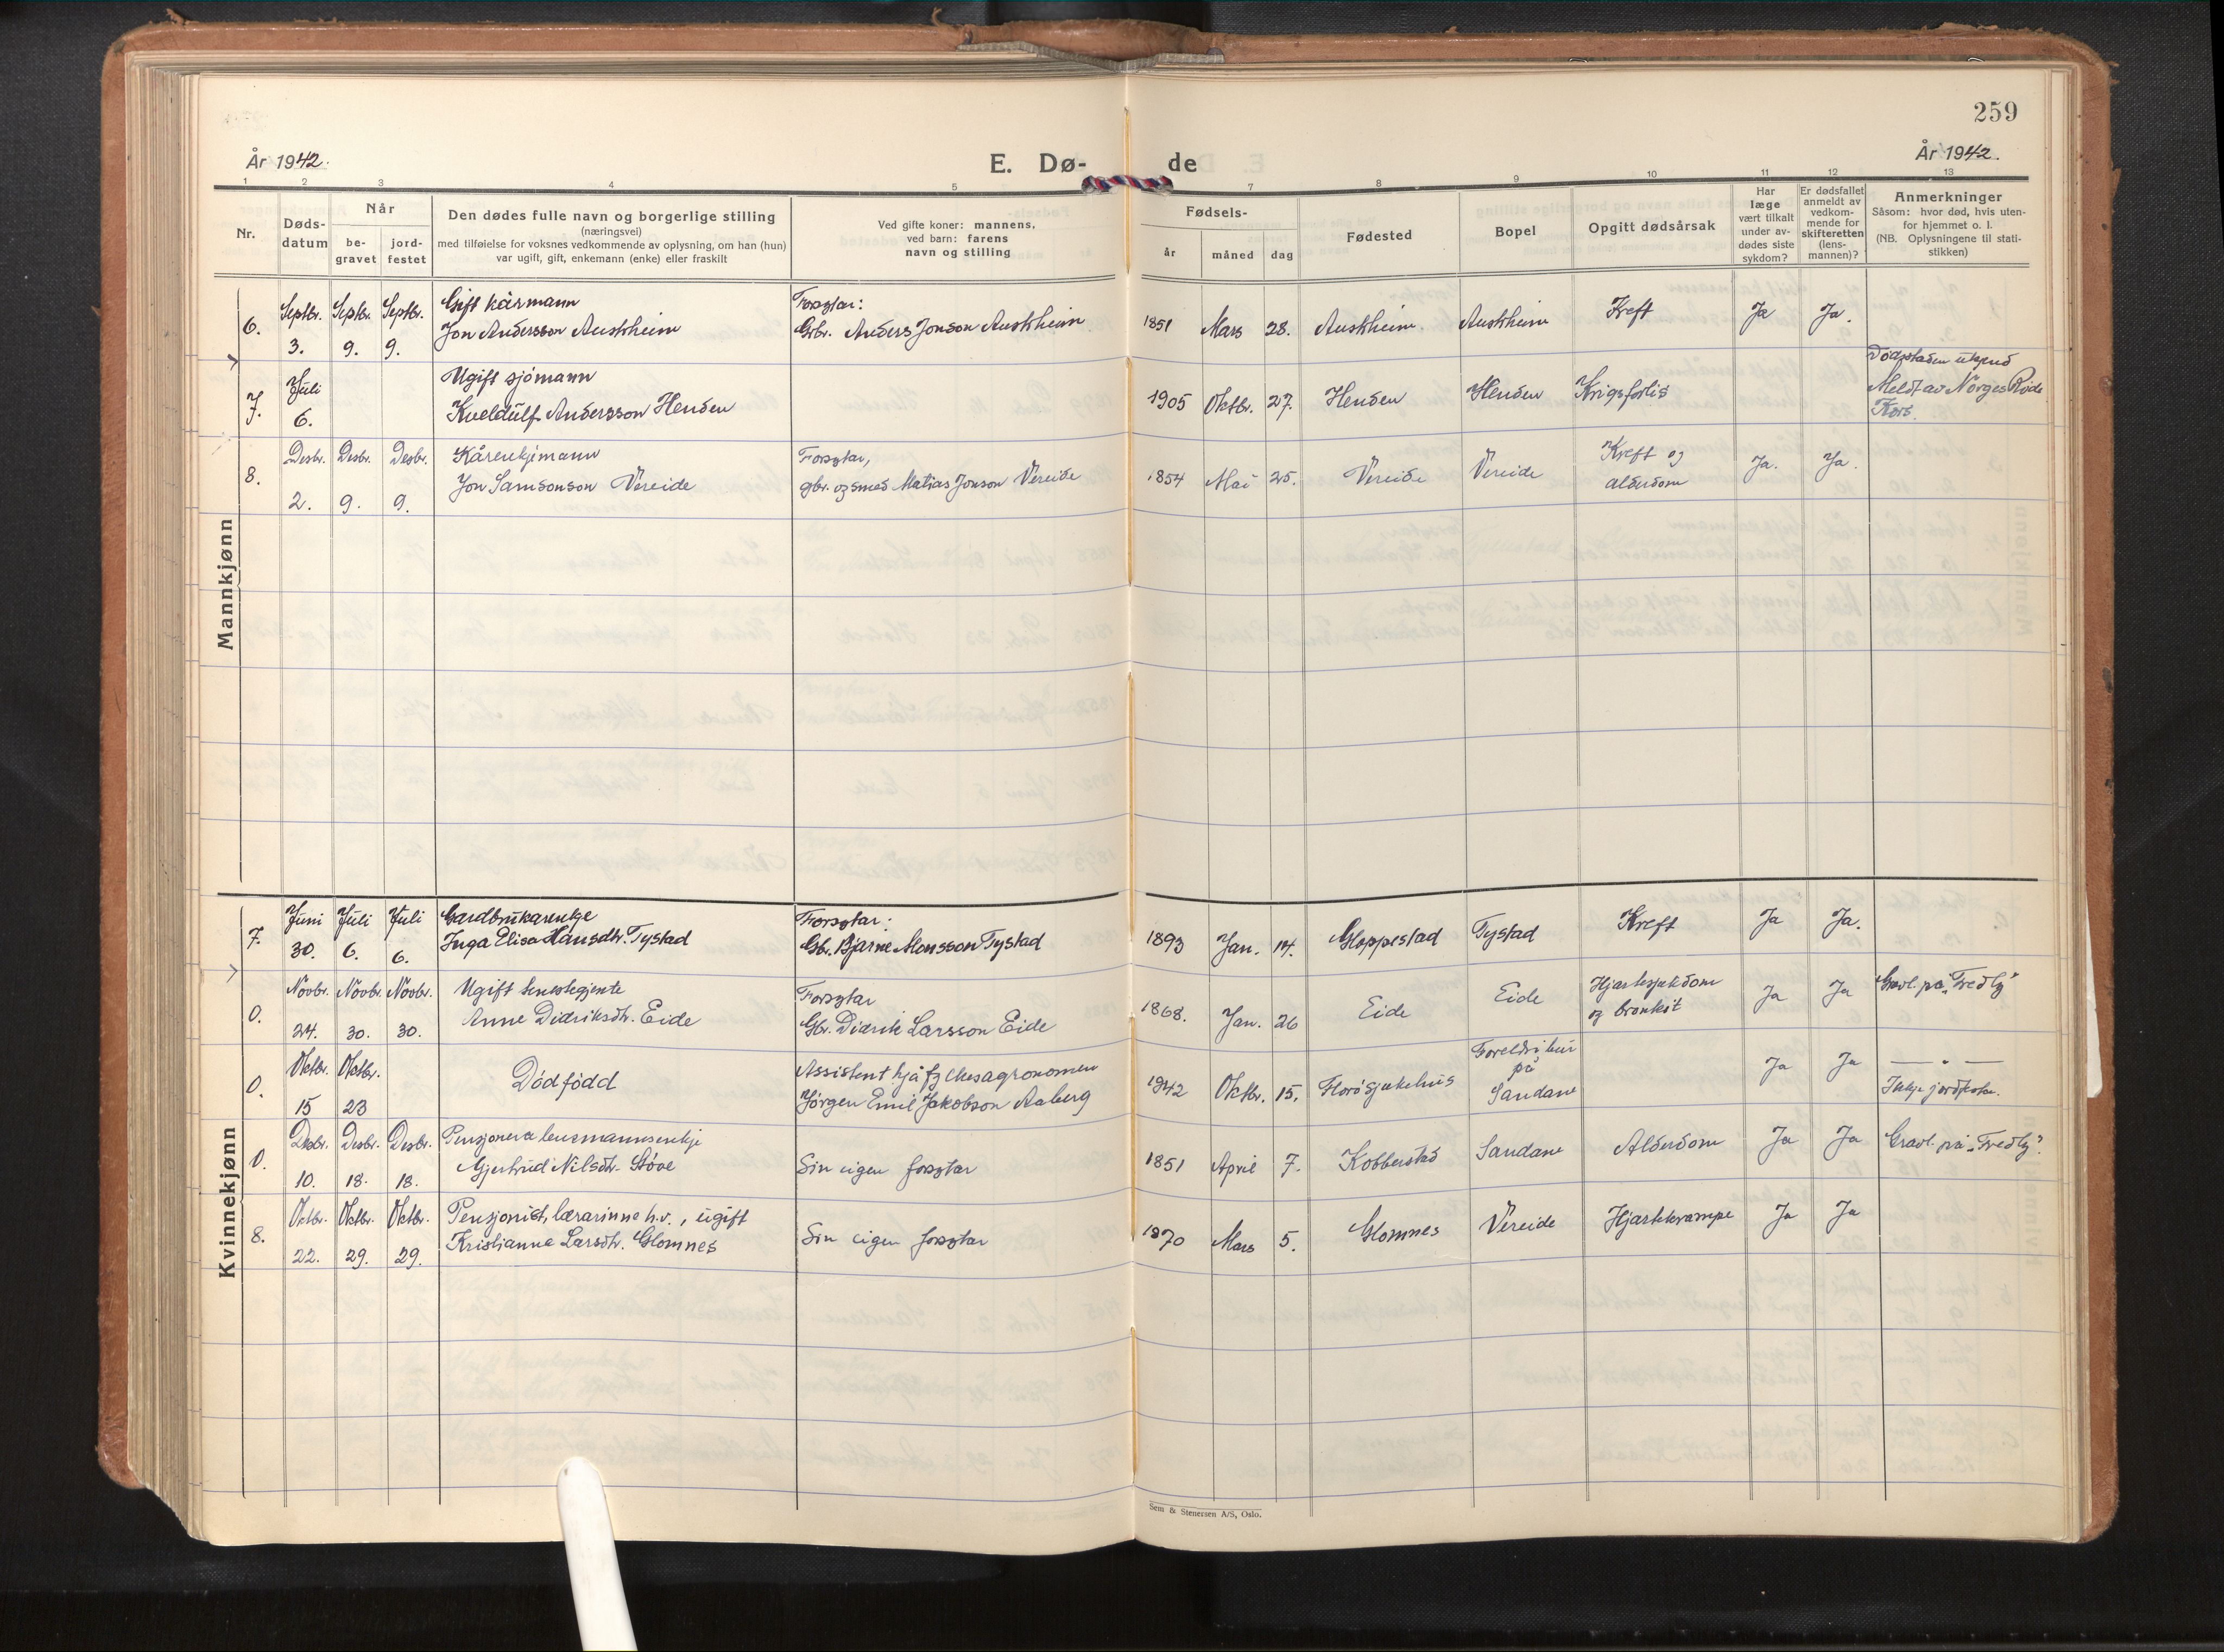 259
År 1942.
E. Dø-
de
År 1942.
1 2 3 4 5 7 8 9 10 11 12 13
Nr.
Døds-
datum
Når
be-
gravet
jord-
festet
Den dødes fulle navn og borgerlige stilling
(næringsvei)
med tilføielse for voksnes vedkommende av oplysning, om han (hun)
var ugift, gift, enkemann (enke) eller fraskilt
Ved gifte koner: mannens,
ved barn: farens
navn og stilling
Fødsels-
år
måned
dag
Fødested
Bopel
Opgitt dødsårsak
Har
læge
vært tilkalt
under av-
dødes siste
sykdom?
Er dødsfallet
anmeldt av
vedkom-
mende for
skifteretten
(lens-
mannen)?
Anmerkninger
Såsom: hvor død, hvis uten-
for hjemmet o. l.
(NB. Oplysningene til stati-
stikken)
Mannkjønn
6.
Septbr. 3.
Septbr. 9.
Septbr. 9.
Gift kårmann
Jon Andersson Austrheim
Forsytar:
Gbr. Anders Jonson Austrheim
1851 Mars 28. Austrheim Austrheim Kreft Ja Ja.
7.
Juli 6.
Ugift sjómann
Kveldulf Andersson Henden
1905 Oktbr. 27. Henden Henden Krigsforlis
Dødsstaden ukjend
Meldt av Norges Røde
Kors.
8.
Desbr. 2.
Desbr. 9.
Desbr. 9.
Kårenkjemann
Jon Samsonson Vereide
Forsytar,
gbr. og smed Matias Jonson Vereide
1854 Mai 25. Vereide Vereide
Kreft og
alderdom
Ja. Ja.
Kvinnekjønn
7.
Juni 30.
Juli 6.
Juli 6.
Gardbrukarenkje
Inga Elisa Hansdtr. Tystad
Forsytar:
Gbr. Bjarne Monsson Tystad
1893 Jan. 14. Gloppestad Tystad Kreft Ja Ja.
0.
Novbr. 24.
Novbr. 30.
Novbr. 30.
Ugift tenestegjente
Anne Didriksdtr. Eide
Forsytar
Gbr. Didrik Larsson Eide
1868. Jan. 26 Eide Eide
Hjartesjukdom
og bronkit
Ja Ja
Gravl. på "Fredly"
0.
Oktbr. 15
Oktbr. 23
Dódfódd
Assistent hjå fylkesagronomen
Jørgen Emil Jakobson Aaberg
1942 Oktbr. 15. Florø sjukehus
Foreldri bur
på
Sandane
Ja Ja
— " —
Ikkje jordfesta.
0.
Desbr. 10.
Desbr. 18.
Desbr. 18.
Pensjonera lensmannsenkje
Gjertrud Nilsdtr. Støve
Sin eigen forsytar
1851 April 7. Kobberstad Sandane Alderdom Ja Ja
Gravl. på "Fredly"
8.
Oktbr. 22.
Oktbr. 29.
Oktbr. 29.
Pensjonist, lærarinne h.v., ugift
Kristianna Larsdtr. Glomnes
Sin eigen forsytar
1870 Mars 5. Glomnes Vereide Hjartekrampe Ja Ja
Sem & Stenersen A/S, Oslo.